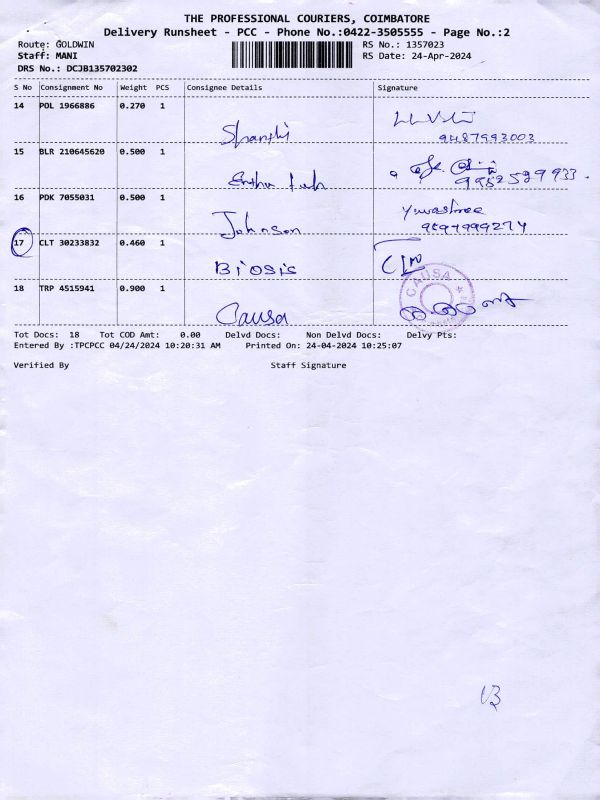 THE PROFESSIONAL COURIERS, COIMBATORE
Delivery Runsheet - PCC - Phone No.:0422-3505555 - Page No.:2
Route: GOLDWIN
RS No.: 1357023
Staff: MANI
RS Date: 24-Apr-2024
DRS No.: DCJB135702302
S No Consignment No Weight PCS Consignee Details Signature
14 POL 1966886 0.270 1
Shanthi
9487993003
15 BLR 210645620 0.500 1
9952529933.
16 PDK 7055031 0.500 1
Johnson
Yuvashree
17 CLT 30233832 0.460 1
Biosis
18 TRP 4515941 0.900 1
CAUSA
Causa
Tot Docs: 18 Tot COD Amt: 0.00 Delvd Docs: Non Delvd Docs: Delvy Pts:
Entered By :TPCPCC 04/24/2024 10:20:31 AM Printed On: 24-04-2024 10:25:07
Verified By Staff Signature